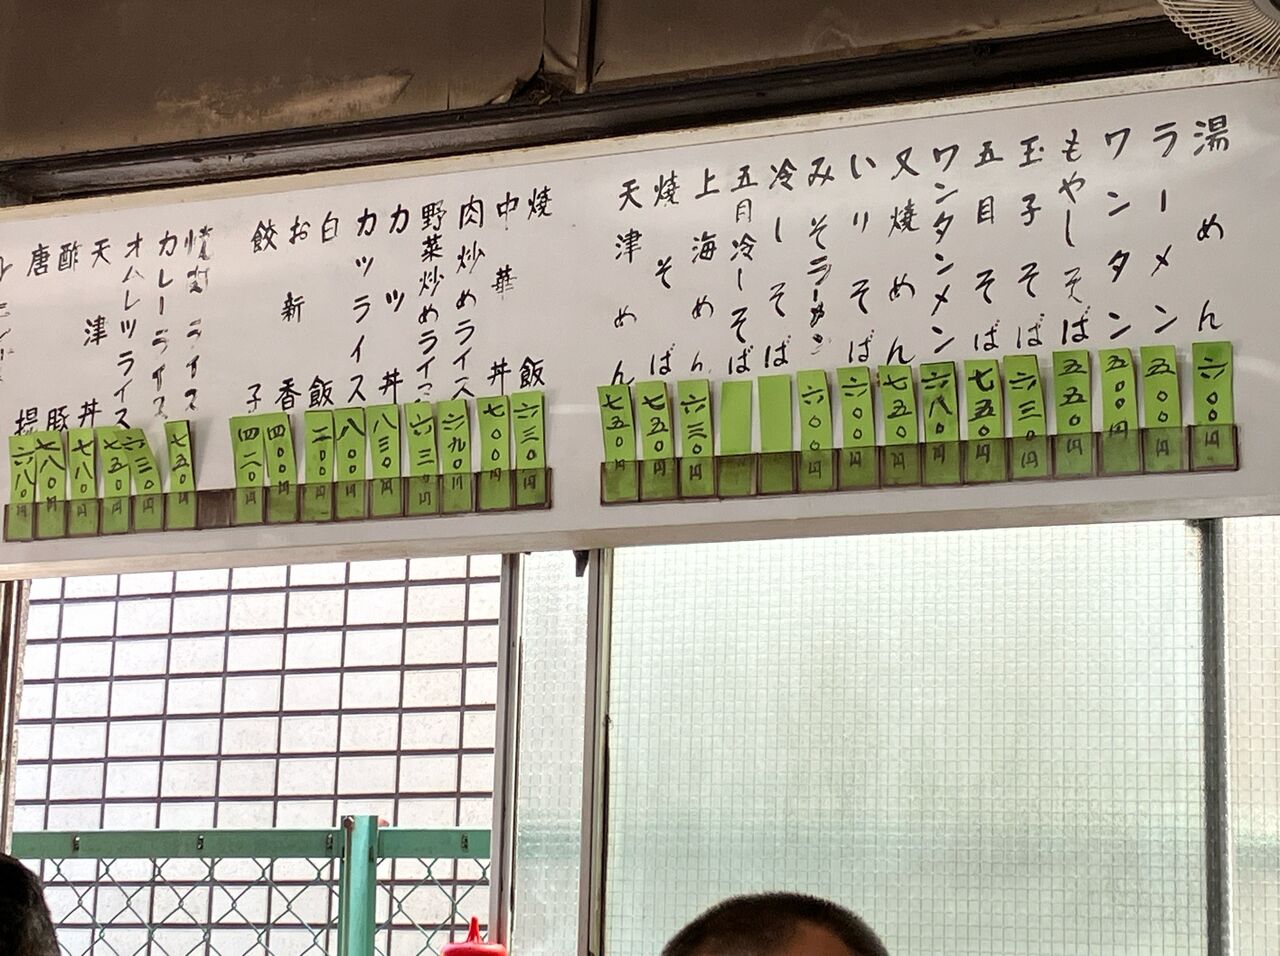 湯めん 六〇〇円
ラーメン 五〇〇円
ワンタン 五〇〇円
もやしそば 五五〇円
玉子そば 六三〇円
五目そば 七五〇円
ワンタンメン 六八〇円
叉焼めん 七五〇円
いりそば 六〇〇円
みそラーメン 六〇〇円
冷しそば
五目冷しそば
上海めん 六三〇円
焼そば 七五〇円
天津めん 七五〇円
焼飯 六三〇円
中華丼 七〇〇円
肉炒めライス 六九〇円
野菜炒めライス 六三〇円
カツ丼 八三〇円
カツライス 八〇〇円
白飯 二〇〇円
お新香 四〇〇円
餃子 四二〇円
焼肉ライス 七五〇円
カレーライス 六三〇円
オムレツライス 七五〇円
天津丼 七八〇円
酢豚 七八〇円
唐揚 六八〇円